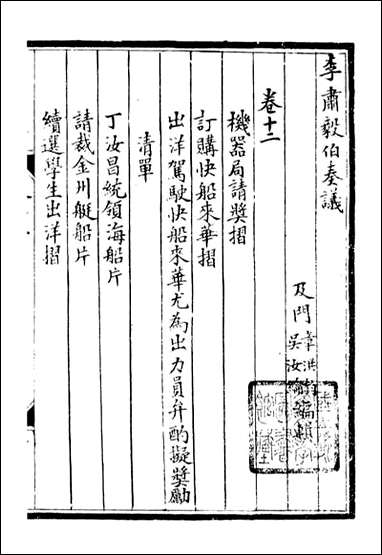 李肅毅伯奏議
及門
章洪鈞
吳汝綸
編輯
卷十二
機器局請奬摺
訂購快船來華摺
出洋駕駛快船來華尤為出力員弁酌擬奬勵
清單
丁汝昌統領海船片
請裁金州艇船片
續選學生出洋摺